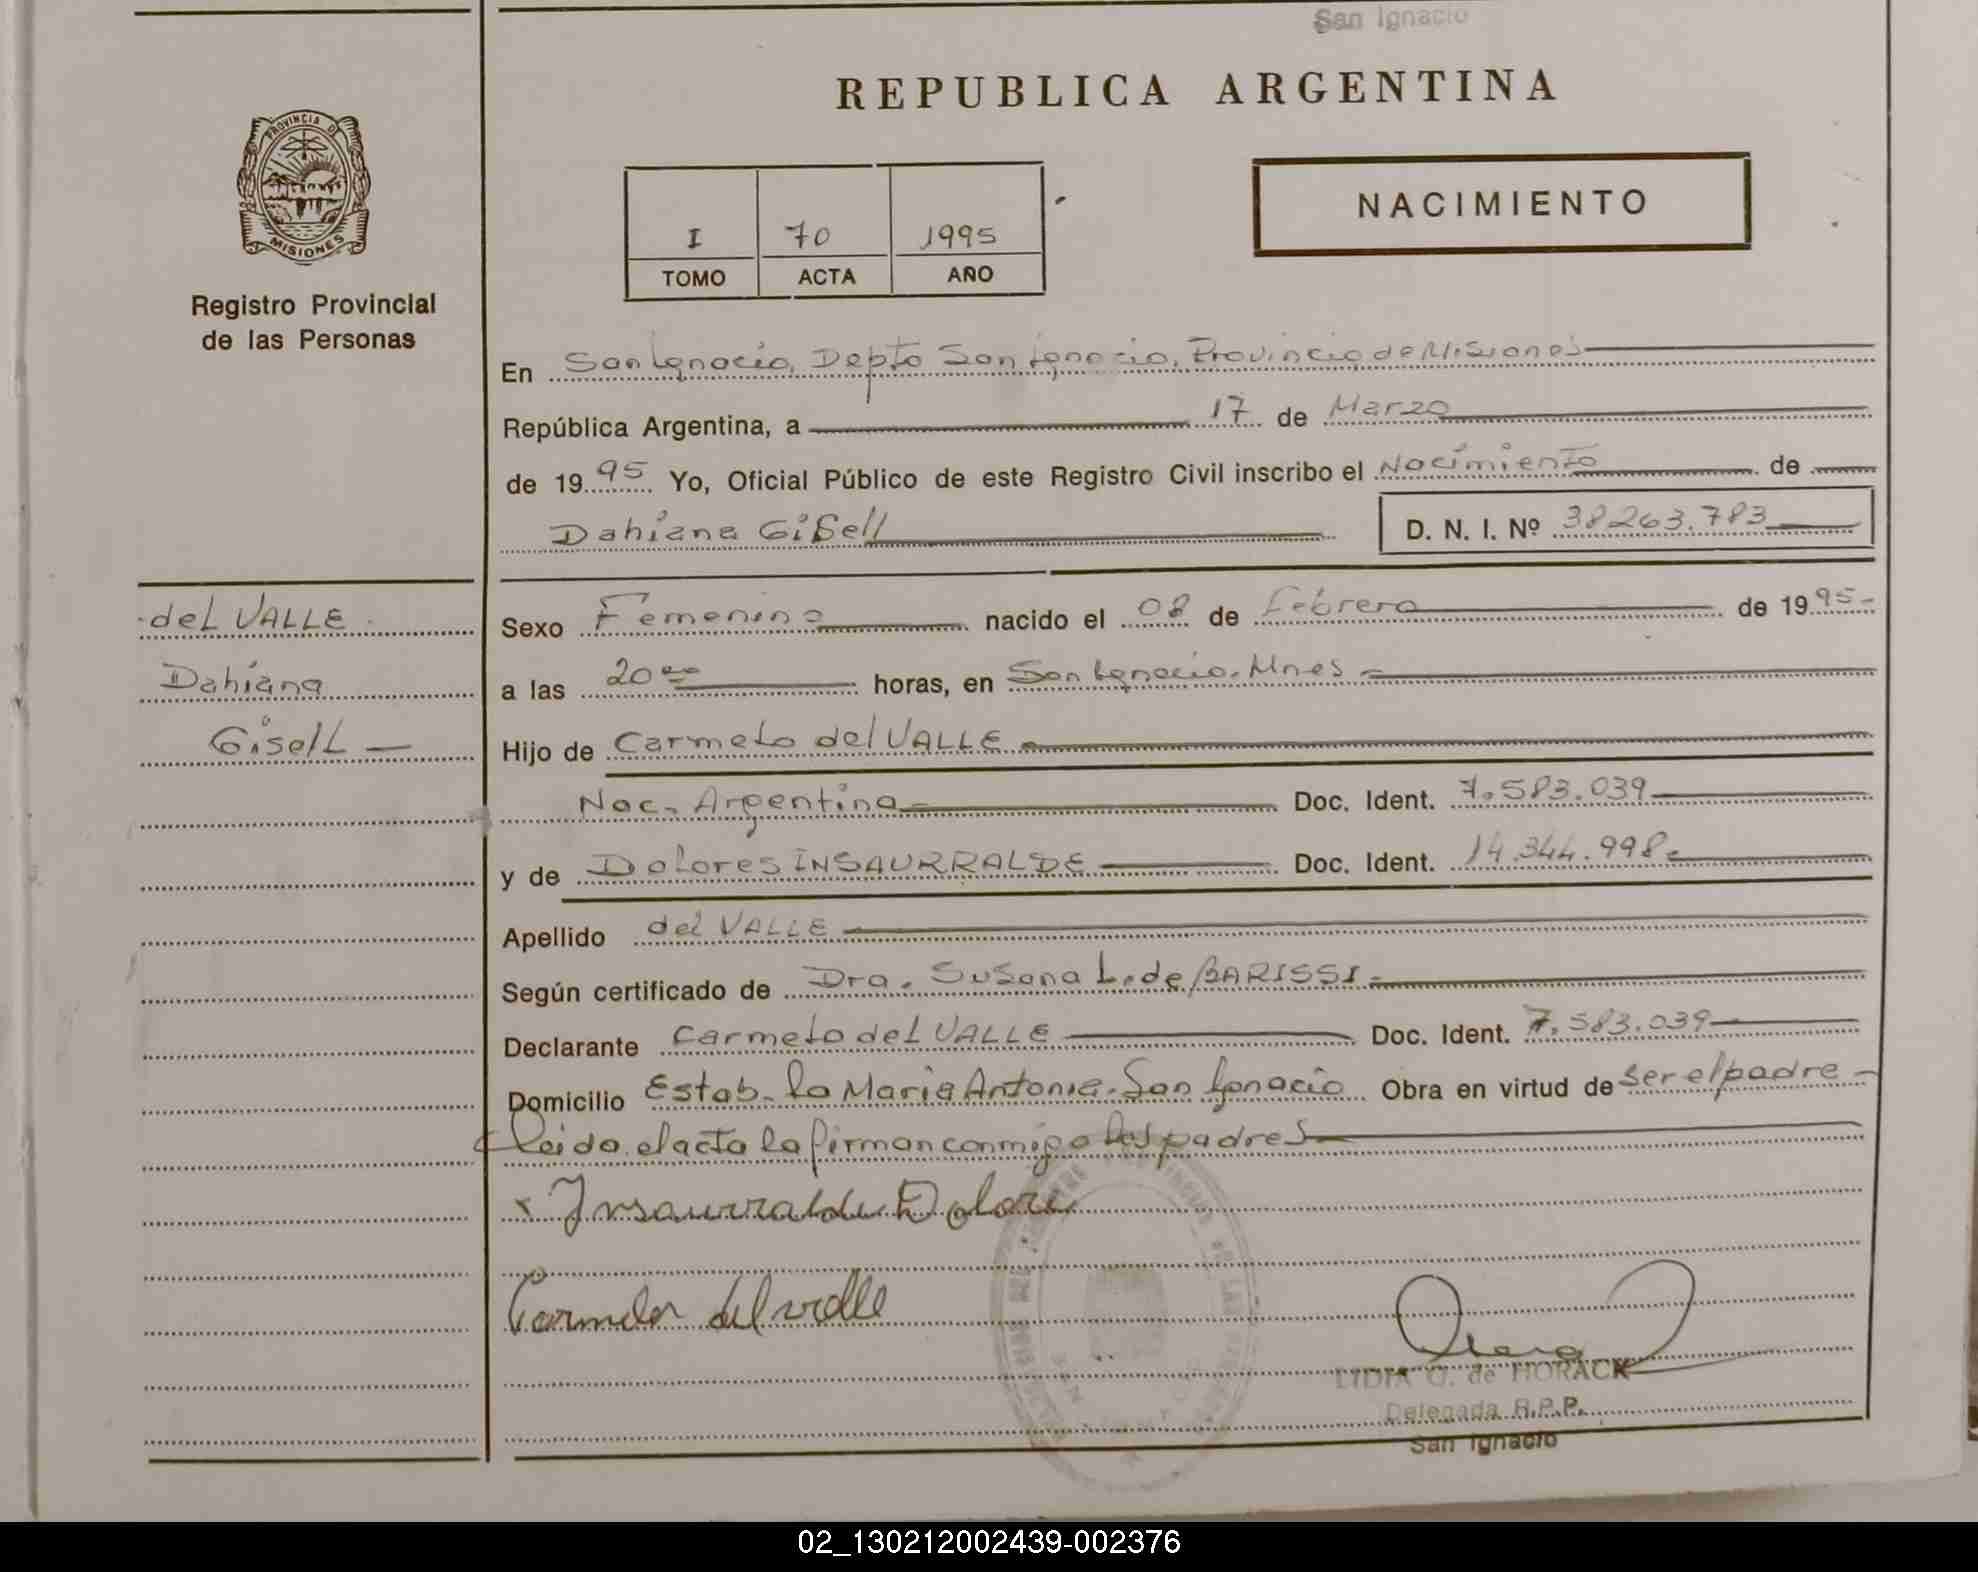 San Ignacio
REPUBLICA ARGENTINA
PROVINCIA DE
MISIONES
Registro Provincial
de las Personas
I 70 1995
TOMO ACTA AÑO
NACIMIENTO
En San Ignacio, Depto San Ignacio, Provincia de Misiones
República Argentina, a 17 de Marzo
de 1995 Yo, Oficial Público de este Registro Civil inscribo el Nacimiento de
Dahiana Gisell D. N. I. Nº 38263.783
del VALLE
Dahiana
Gisell
Sexo Femenino nacido el 08 de Febrero de 1995-
a las 20 00 horas, en San Ignacio. Mnes -
Hijo de Carmelo del VALLE
Nac. Argentina Doc. Ident. 7.583.039
y de Dolores INSAURRALDE Doc. Ident. 14.344.998-
Apellido del VALLE
Según certificado de Dra. Susana L. de BARISSI-
Declarante Carmelo del VALLE Doc. Ident. 7.583.039
Domicilio Estab. la Maria Antonia. San Ignacio Obra en virtud de ser el padre -
Leida el acta la firman conmigo los padres
x Insaurralde Dolore
Carmelo del valle
LIDIA G. de HORACK
Delegada R.P.P.
San Ignacio
02_130212002439-002376